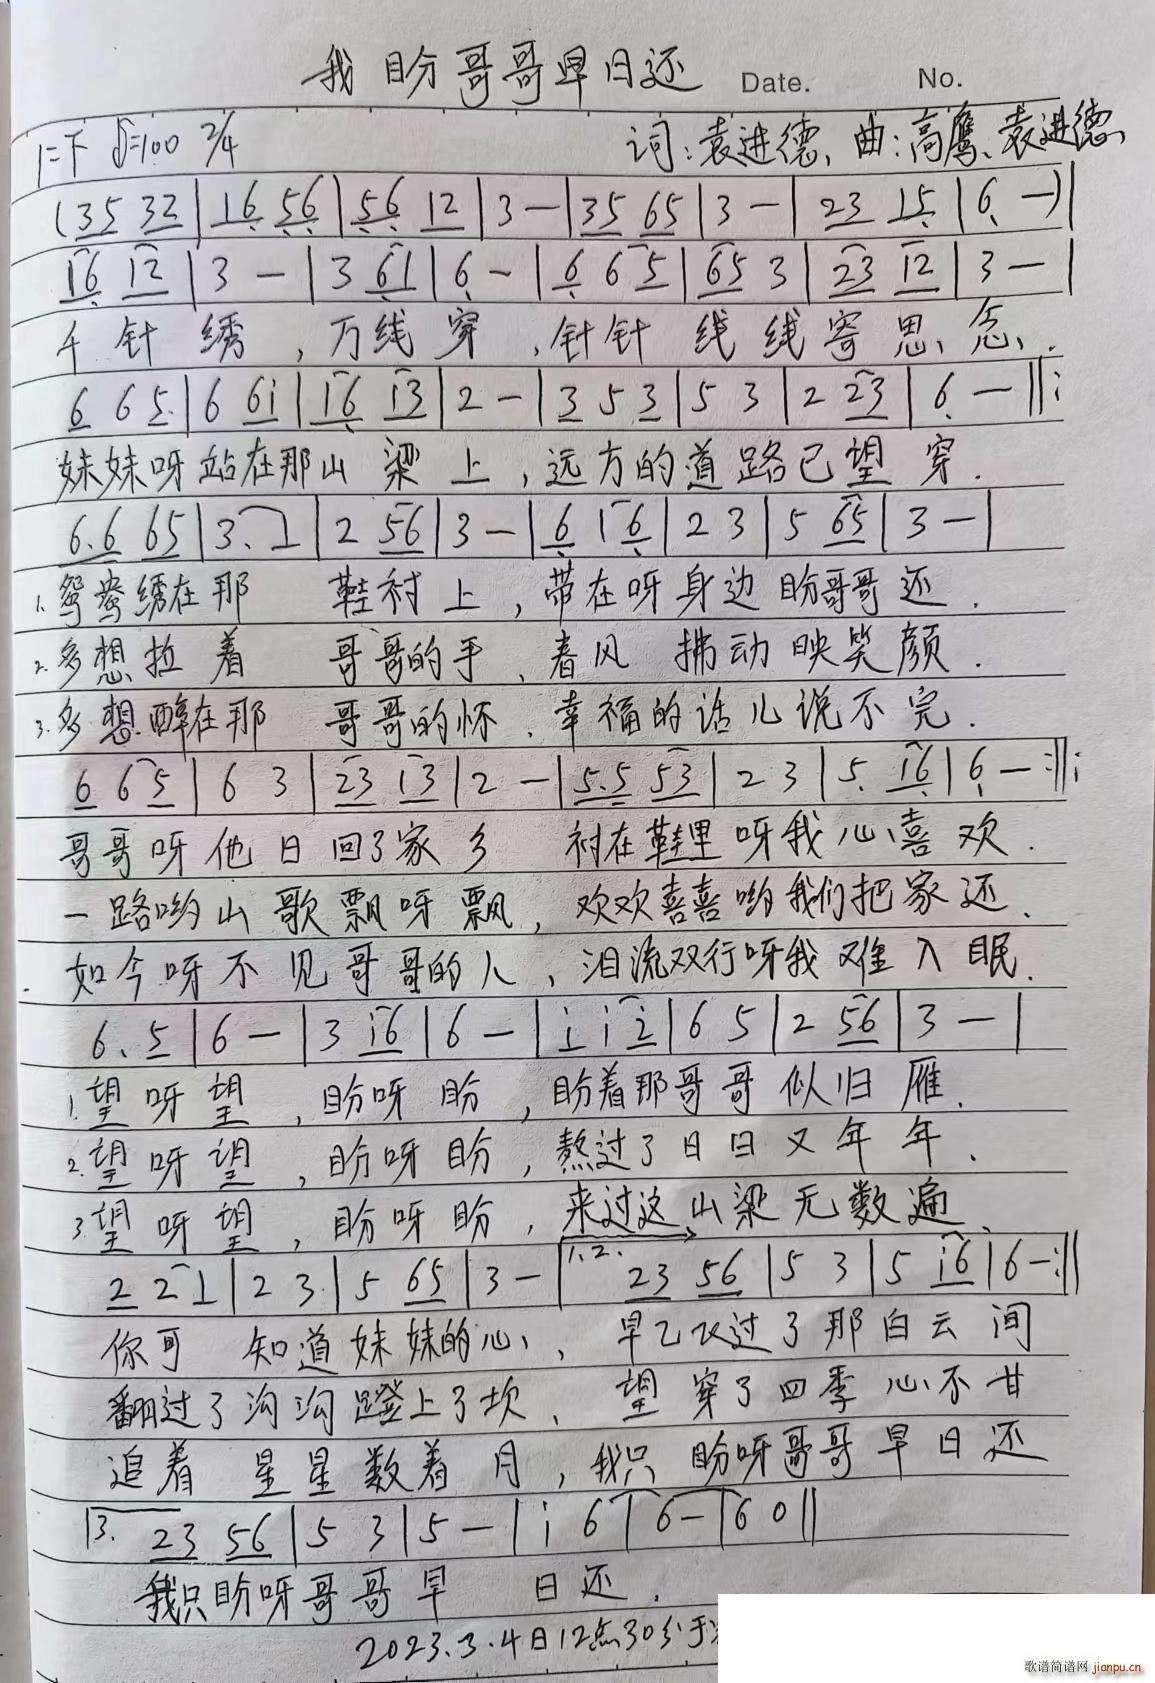 我盼哥哥早日还 Date. No.
1=F ♩=100 2/4 词:袁进德、曲:高鹰、袁进德
(35 32|16 56|56 12|3 —|35 65|3 —|23 15|6 —)|
16 12|3 —|3 61|6 —|6 6 5|65 3|23 12|3 —|
千针绣,万线穿,针针线线寄思念.
6 6 5|6 6i|16 13|2 —|3 5 3|5 3|2 23|6 —‖:
妹妹呀站在那山梁上,远方的道路已望穿.
6.6 65|3. 1|2 56|3 —|6 1 6|2 3|5 65|3 —|
1.鸳鸯绣在那鞋衬上,带在呀身边盼哥哥还.
2.多想拉着哥哥的手,春风拂动映笑颜.
3.多想醉在那哥哥的怀.幸福的话儿说不完.
6 6 5|6 3|23 13|2 —|5.5 53|2 3|5 16|6 —:‖:
哥哥呀他日回了家乡 衬在鞋里呀我心喜欢.
一路哟山歌飘呀飘,欢欢喜喜哟我们把家还.
如今呀不见哥哥的人,泪流双行呀我难入眠.
6. 5|6 —|3 i6|6 —|i i 2|6 5|2 56|3 —|
1.望呀望,盼呀盼,盼着那哥哥似归雁.
2.望呀望,盼呀盼,熬过了日日又年年.
3.望呀望,盼呀盼,来过这山梁无数遍.
2 2 1|2 3|5 65|3 —|1.2. 23 56|5 3|5 i6|6 —:‖
你可知道妹妹的心,早已飞过了那白云间
翻过了沟沟蹬上了坎、望穿了四季心不甘
追着星星数着月,我只盼呀哥哥早日还
|3. 23 56|5 3|5 —|i 6|6 —|6 0‖
我只盼呀哥哥早日还.
2023.3.4日12点30分于
歌谱简谱网 jianpu.cn